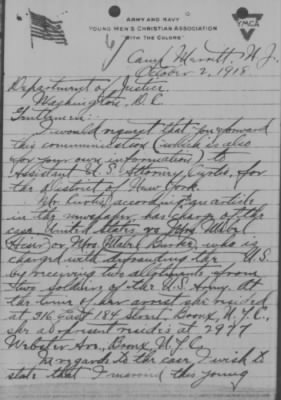 ARMY AND NAVY
YOUNG MEN'S CHRISTIAN ASSOCIATION
"WITH THE COLORS"
YMCA
Camp Merritt, N.J.
October 2, 1918.
Department of Justice,
Washington, D.C.
Gentlemen:
I would request that you forward
this communication (which is also
for your own information) to
Assistant U.S. Attorney Curtis, for
the District of New York.
Mr. Curtis, according to an article
in the newspaper, has charge of the
case United States vs Mrs. Mabel
or Mrs. Mabel Burke, who is
charged with defrauding the U.S.
by receiving two allotments from
two soldiers of the U.S. Army. At
the time of her arrest she resided
at 316 East 184 Street, Bronx, N.Y.C.,
she at present resides at 2977
Webster Ave., Bronx, N.Y.C.
In regards to the case, I wish to
state that I married this young